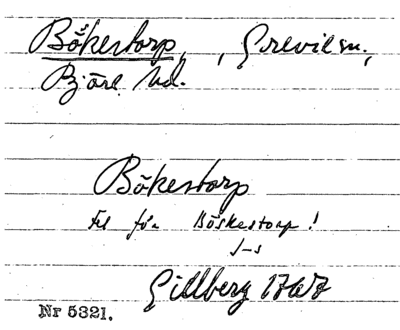 Bökestorp, , Grevie sn.,
Bjäre hd.
Bökestorp
fel för Böskestorp!
J-s
Gillberg 1767
Nr 5321.